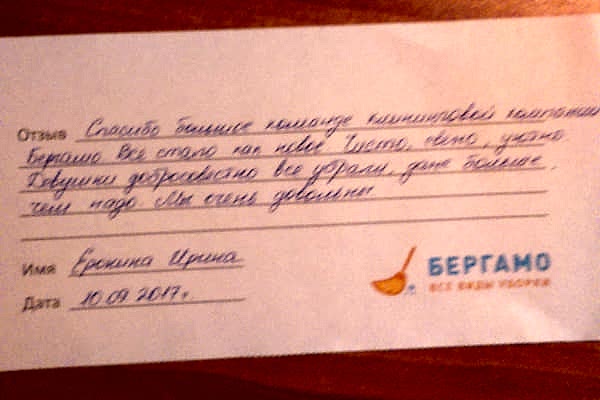 Отзыв Спасибо большое команде клининговой компании
Бергамо Все стало как новое. Чисто, свежо, уютно.
Девушки добросовестно все убрали, даже больше,
чем надо. Мы очень довольны
Имя Еронина Ирина
Дата 10.09.2017г.
БЕРГАМО
ВСЕ ВИДЫ УБОРКИ